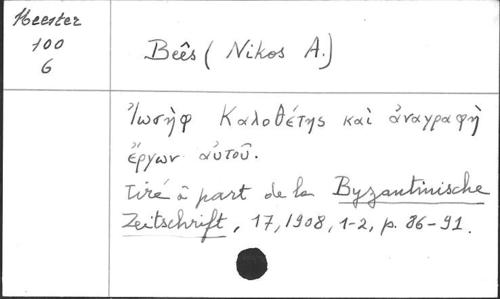 Meester
100
6
Beês (Nikos A.)
Ἰωσὴφ Καλοθέτης καὶ ἀναγραφὴ
ἔργων αὐτοῦ.
Tiré à part de la Byzantinische
Zeitschrift, 17, 1908, 1-2, p. 86-91.